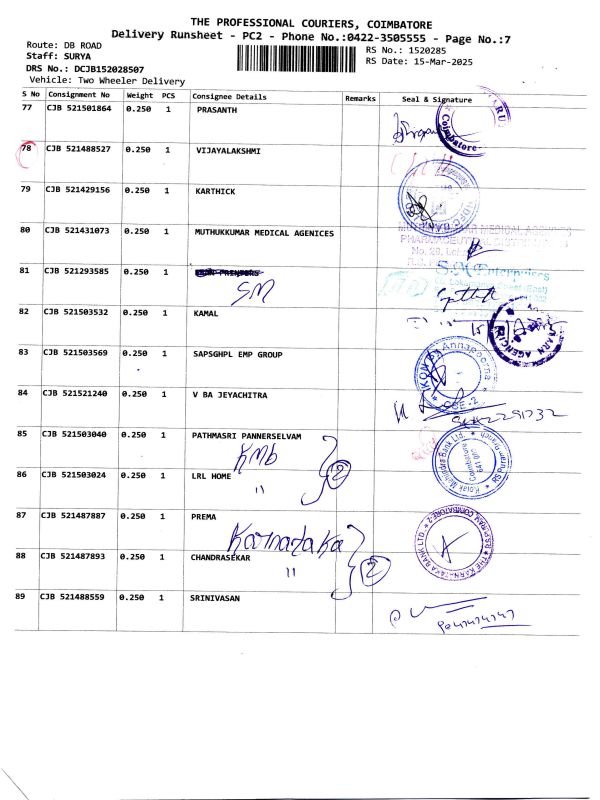 THE PROFESSIONAL COURIERS, COIMBATORE
Delivery Runsheet - PC2 - Phone No.:0422-3505555 - Page No.:7
Route: DB ROAD
RS No.: 1520285
Staff: SURYA
RS Date: 15-Mar-2025
DRS No.: DCJB152028507
Vehicle: Two Wheeler Delivery
S No Consignment No Weight PCS Consignee Details Remarks Seal & Signature
77 CJB 521501864 0.250 1 PRASANTH
78 CJB 521488527 0.250 1 VIJAYALAKSHMI
79 CJB 521429156 0.250 1 KARTHICK
80 CJB 521431073 0.250 1 MUTHUKKUMAR MEDICAL AGENICES
81 CJB 521293585 0.250 1
SM
S.M Enterprises
82 CJB 521503532 0.250 1 KAMAL
83 CJB 521503569 0.250 1 SAPSGHPL EMP GROUP
84 CJB 521521240 0.250 1 V BA JEYACHITRA
85 CJB 521503040 0.250 1 PATHMASRI PANNERSELVAM
KMb
86 CJB 521503024 0.250 1 LRL HOME
" 2
Kotak Mahindra Bank Ltd.
Coimbatore
87 CJB 521487887 0.250 1 PREMA
Karnataka
88 CJB 521487893 0.250 1 CHANDRASEKAR
" 2
THE KARNATAKA BANK LTD.
89 CJB 521488559 0.250 1 SRINIVASAN